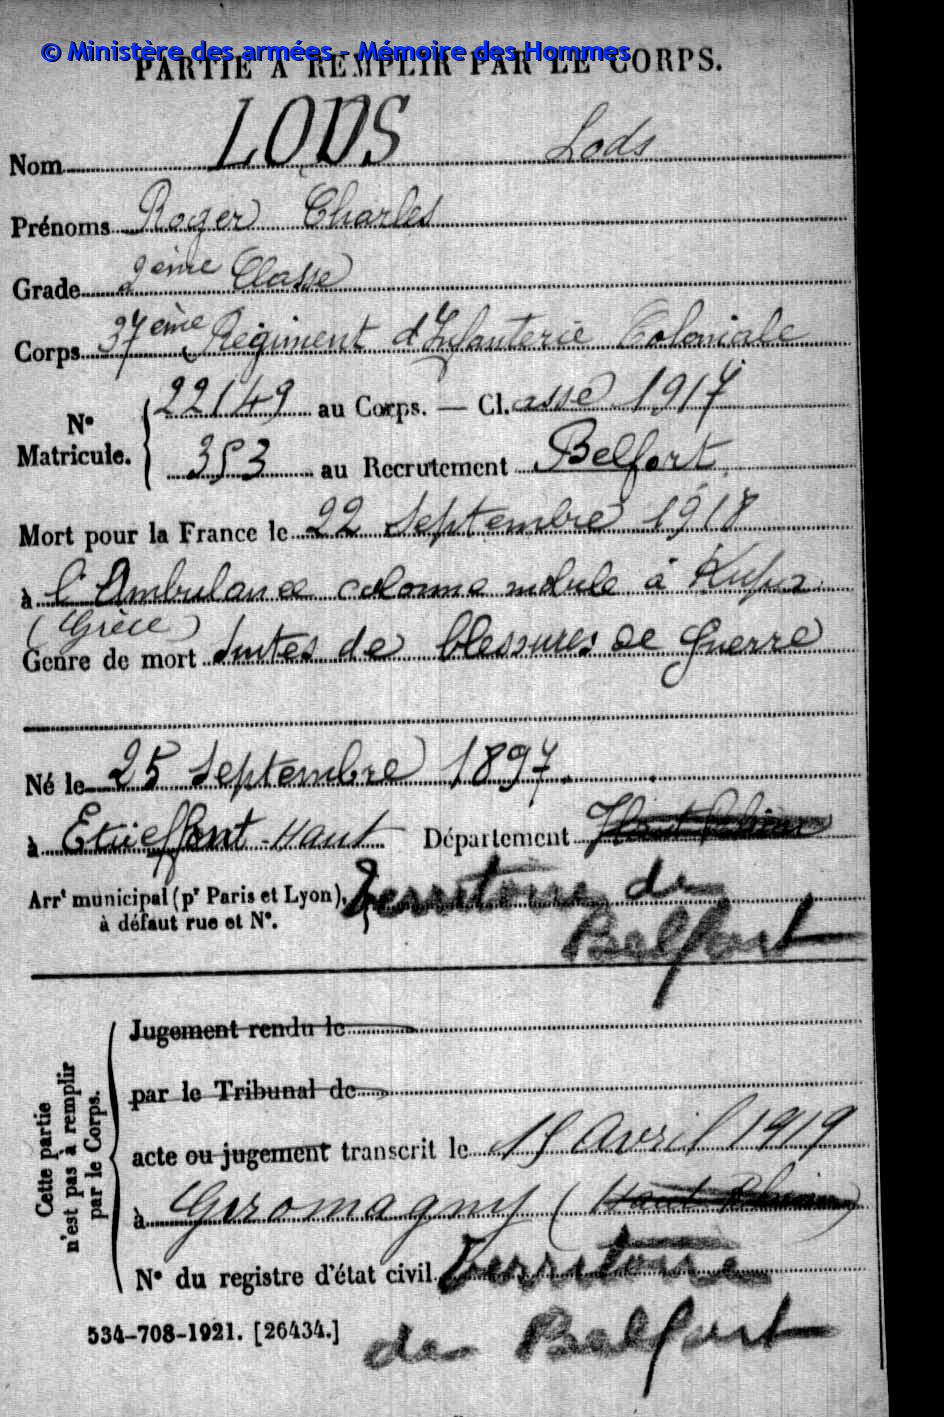 © Ministère des armées - Mémoire des Hommes
PARTIE A REMPLIR PAR LE CORPS.
Nom LODS Lods
Prénoms Roger Charles
Grade 2ème Classe
Corps 37ème Régiment d'Infanterie Coloniale
N° Matricule. 22149 au Corps. — Cl.asse 1917
353 au Recrutement Belfort
Mort pour la France le 22 Septembre 1918
à l'Ambulance colonne mobile à
(Grèce)
Genre de mort Suites de blessures de Guerre
Né le 25 Septembre 1897.
à Etueffont-Haut Département Haut Rhin
Arrt municipal (pr Paris et Lyon), Territoire de
à défaut rue et N°. Belfort
Cette partie n'est pas à remplir par le Corps.
Jugement rendu le
par le Tribunal de
acte ou jugement transcrit le 15 Avril 1919
à Giromagny (Haut Rhin)
N° du registre d'état civil Territoire
534-708-1921. [26434.] de Belfort